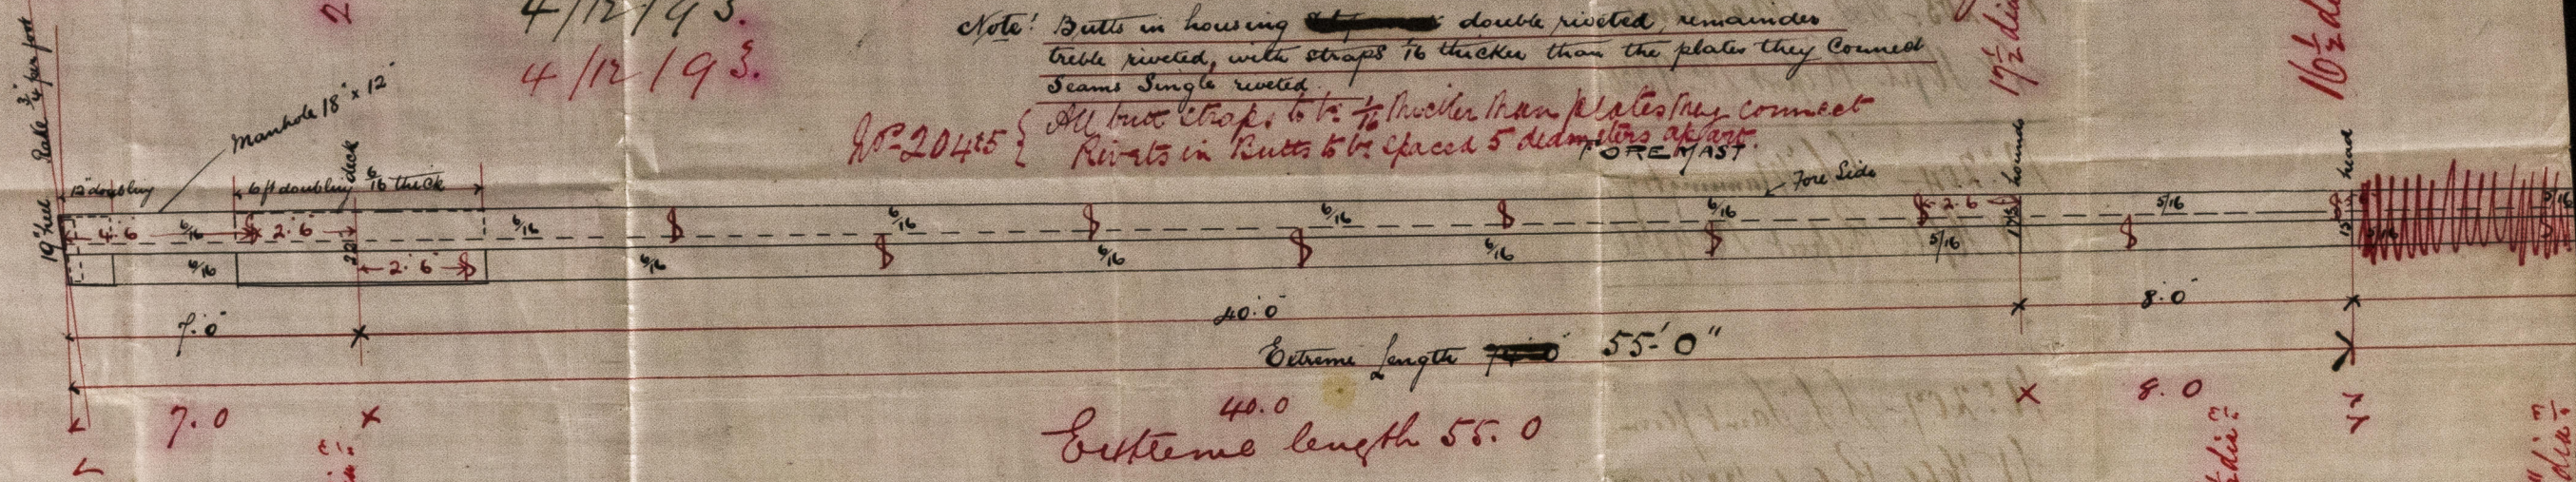 4/12/93.
4/12/93.
Note! Butts in housing double riveted, remainder
treble riveted, with straps 1/16 thicker than the plates they Connect
Seams Single riveted.
Nos 204 & 5 { All butt straps to be 1/16 thicker than plates they connect
Rivets in Butts to be spaced 5 diameters apart.
FOREMAST
Rake 3/4" per foot
Manhole 18" x 12"
17 1/2 dia
16 1/2 di
12" doubling
6 ft doubling 6/16 thick
deck
Fore Side
hounds
head
19" heel
4.6
6/16
2.6
6/16
6/16
6/16
6/16
2.6
5/16
5/16
22
6/16
2.6
6/16
6/16
6/16
5/16
5/16
7.0
40.0
8.0
Extreme length 55'-0"
7.0
40.0
8.0
Extreme length 55.0